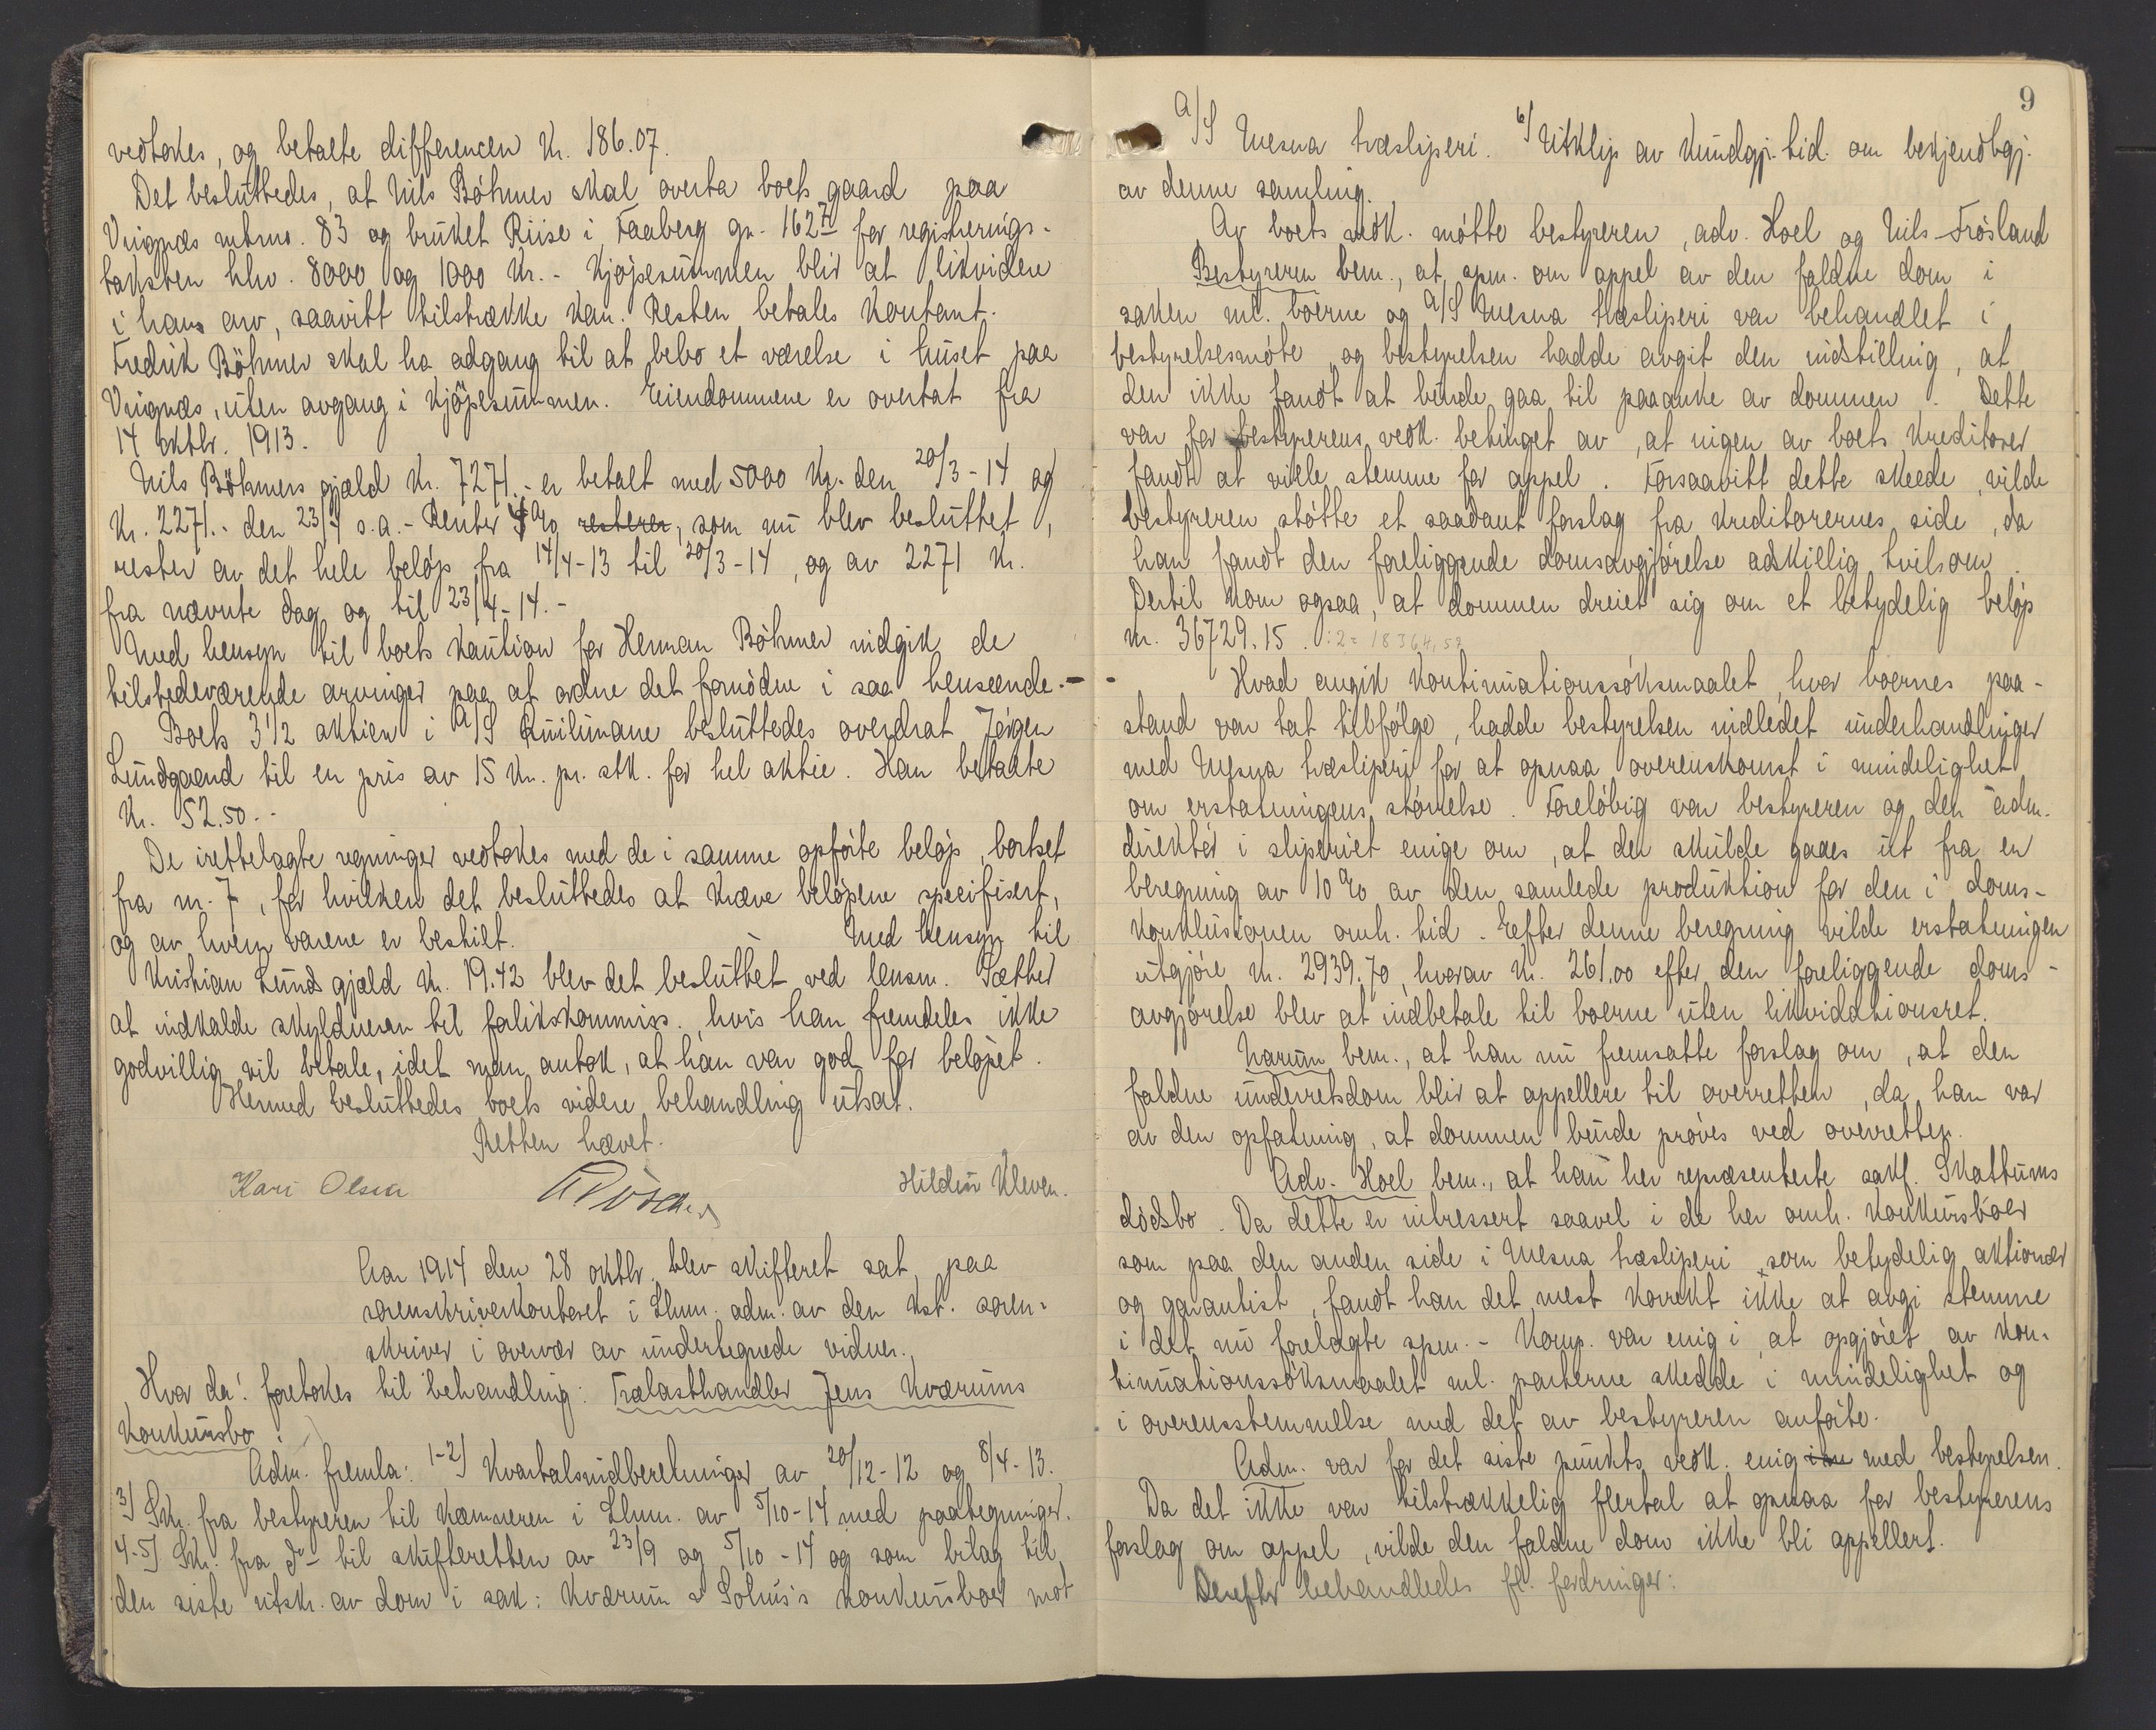 vedtokes, og betalte differencen Kr. 186.07.
Det besluttedes, at Nils Böhmer skal overta boets gaard paa
Vingnæs mtrno. 83 og bruket Riise i Faaberg gn. 162⁷ for registrerings-
taksten hhv. 8000 og 1000 Kr. - Kjøpesummen blir at likvidere
i hans arv, saavitt tilstrække kan. Resten betales kontant.
Fredrik Böhmer skal ha adgang til at bebo et værelse i huset paa
Vingnæs, uten avgang i kjøpesummen. Eiendommene er overtat fra
14 oktbr. 1913.
Nils Böhmers gjæld Kr. 7271.- er betalt med 5000 Kr. den 20/3-14 og
Kr. 2271.- den 23/4 s.a. - Renter 4% resterer, som nu blev besluttet,
rester av det hele beløp fra 14/4-13 til 20/3-14, og av 2271 Kr.
fra nævnte dag og til 23/4-14.-
Med hensyn til boets kaution for Herman Böhmer indgik de
tilstedeværende arvinger paa at ordne det fornødne i saa henseende.-
Boets 3 1/2 aktier i A/S Quilimane besluttedes overdrat Jørgen
Lundgaard til en pris av 15 Kr. pr. stk. for hel aktie. Han betalte
Kr. 52.50.-
De irettelagte regninger vedtokes med de i samme opførte beløp, bortset
fra nr. 7, for hvilken det besluttedes at kræve beløpene specifisert,
og av hvem varene er bestilt. Med hensyn til
Kristian Lunds gjæld Kr. 19.42 blev det besluttet ved lensm. Sæther
at indkalde skyldneren til forlikskommiss. hvis han fremdeles ikke
godvillig vil betale, idet man antok, at han var god for beløpet.
Hermed besluttedes boets videre behandling utsat.
Retten hævet.
Kari Olsen
Hildur Kleven.
Aar 1914 den 28 oktbr. blev skifteret sat paa
sorenskriverkontoret i Lhmr. adm. av den kst. soren-
skriver i overvær av undertegnede vidner.
Hvor da: foretokes til behandling: Trælasthandler Jens Kværums
Konkursbo:
Adm. fremla: 1-2) Kvartalsindberetninger av 20/12-12 og 8/4-13.
3) Skr. fra bestyreren til kæmneren i Lhmr. av 5/10-14 med paategninger.
4-5) Skr. fra do til skifteretten av 23/9 og 5/10-14 og som bilag til
den siste utskr. av dom i sak: Kværum & Solhus's konkursboer mot
9
A/S Mesna træsliperi. 6) Utklip av Kundgj. tid. om bekjendtgj.
av denne samling.
Av boets vedk. møtte bestyreren, adv. Hoel og Nils Frøsland
Bestyreren bem., at spm. om appel av den faldne dom i
saken ml. boerne og A/S Mesna træsliperi var behandlet i
bestyrelsesmøte, og bestyrelsen hadde avgit den indstilling, at
den ikke fandt at burde gaa til paaanke av dommen. Dette
var for bestyrerens vedk. betinget av, at ingen av boets kreditorer
fandt at ville stemme for appel. Forsaavitt dette skeede, vilde
bestyreren støtte et saadant forslag fra kreditorernes side, da
han fandt den foreliggende domsavgjørelse adskillig tvilsom.
Dertil kom ogsaa, at dommen dreiet sig om et betydelig beløp
Kr. 36729.15. :2 = 18364,59
Hvad angik kontinuationssøksmaalet, hvor boernes paa-
stand var tat tilfølge, hadde bestyrelsen indledet underhandlinger
med Mesna træsliperi for at opnaa overenskomst i mindelighet
om erstatningens størrelse. Foreløbig var bestyreren og den adm.
direktør i sliperiet enige om, at der skulde gaaes ut fra en
beregning av 10% av den samlede produktion for den i doms-
konklusionen omh. tid. Efter denne beregning vilde erstatningen
utgjøre Kr. 2939.70, hvorav Kr. 261.00 efter den foreliggende doms-
avgjørelse blev at indbetale til boerne uten likvidationsret.
Kværum bem., at han nu fremsatte forslag om, at den
faldne underretsdom blir at appellere til overretten, da han var
av den opfatning, at dommen burde prøves ved overretten.
Adv. Hoel bem., at han her repræsenterte sakf. Skattums
dødsbo. Da dette er interessert saavel i de her omh. konkursboer
som paa den anden side i Mesna træsliperi, som betydelig aktionær
og garantist, fandt han det mest korrekt ikke at avgi stemme
i det nu forelagte spm. - Komp. var enig i, at opgjøret av kon-
tinuationssøksmaalet ml. parterne skedde i mindelighet og
i overensstemmelse med det av bestyreren anførte.
Adm. var for det siste punkts vedk. enig med bestyrelsen.
Da det ikke var tilstrækkelig flertal at opnaa for bestyrerens
forslag om appel, vilde den faldne dom ikke bli appellert.
Derefter behandledes fl. fordringer: